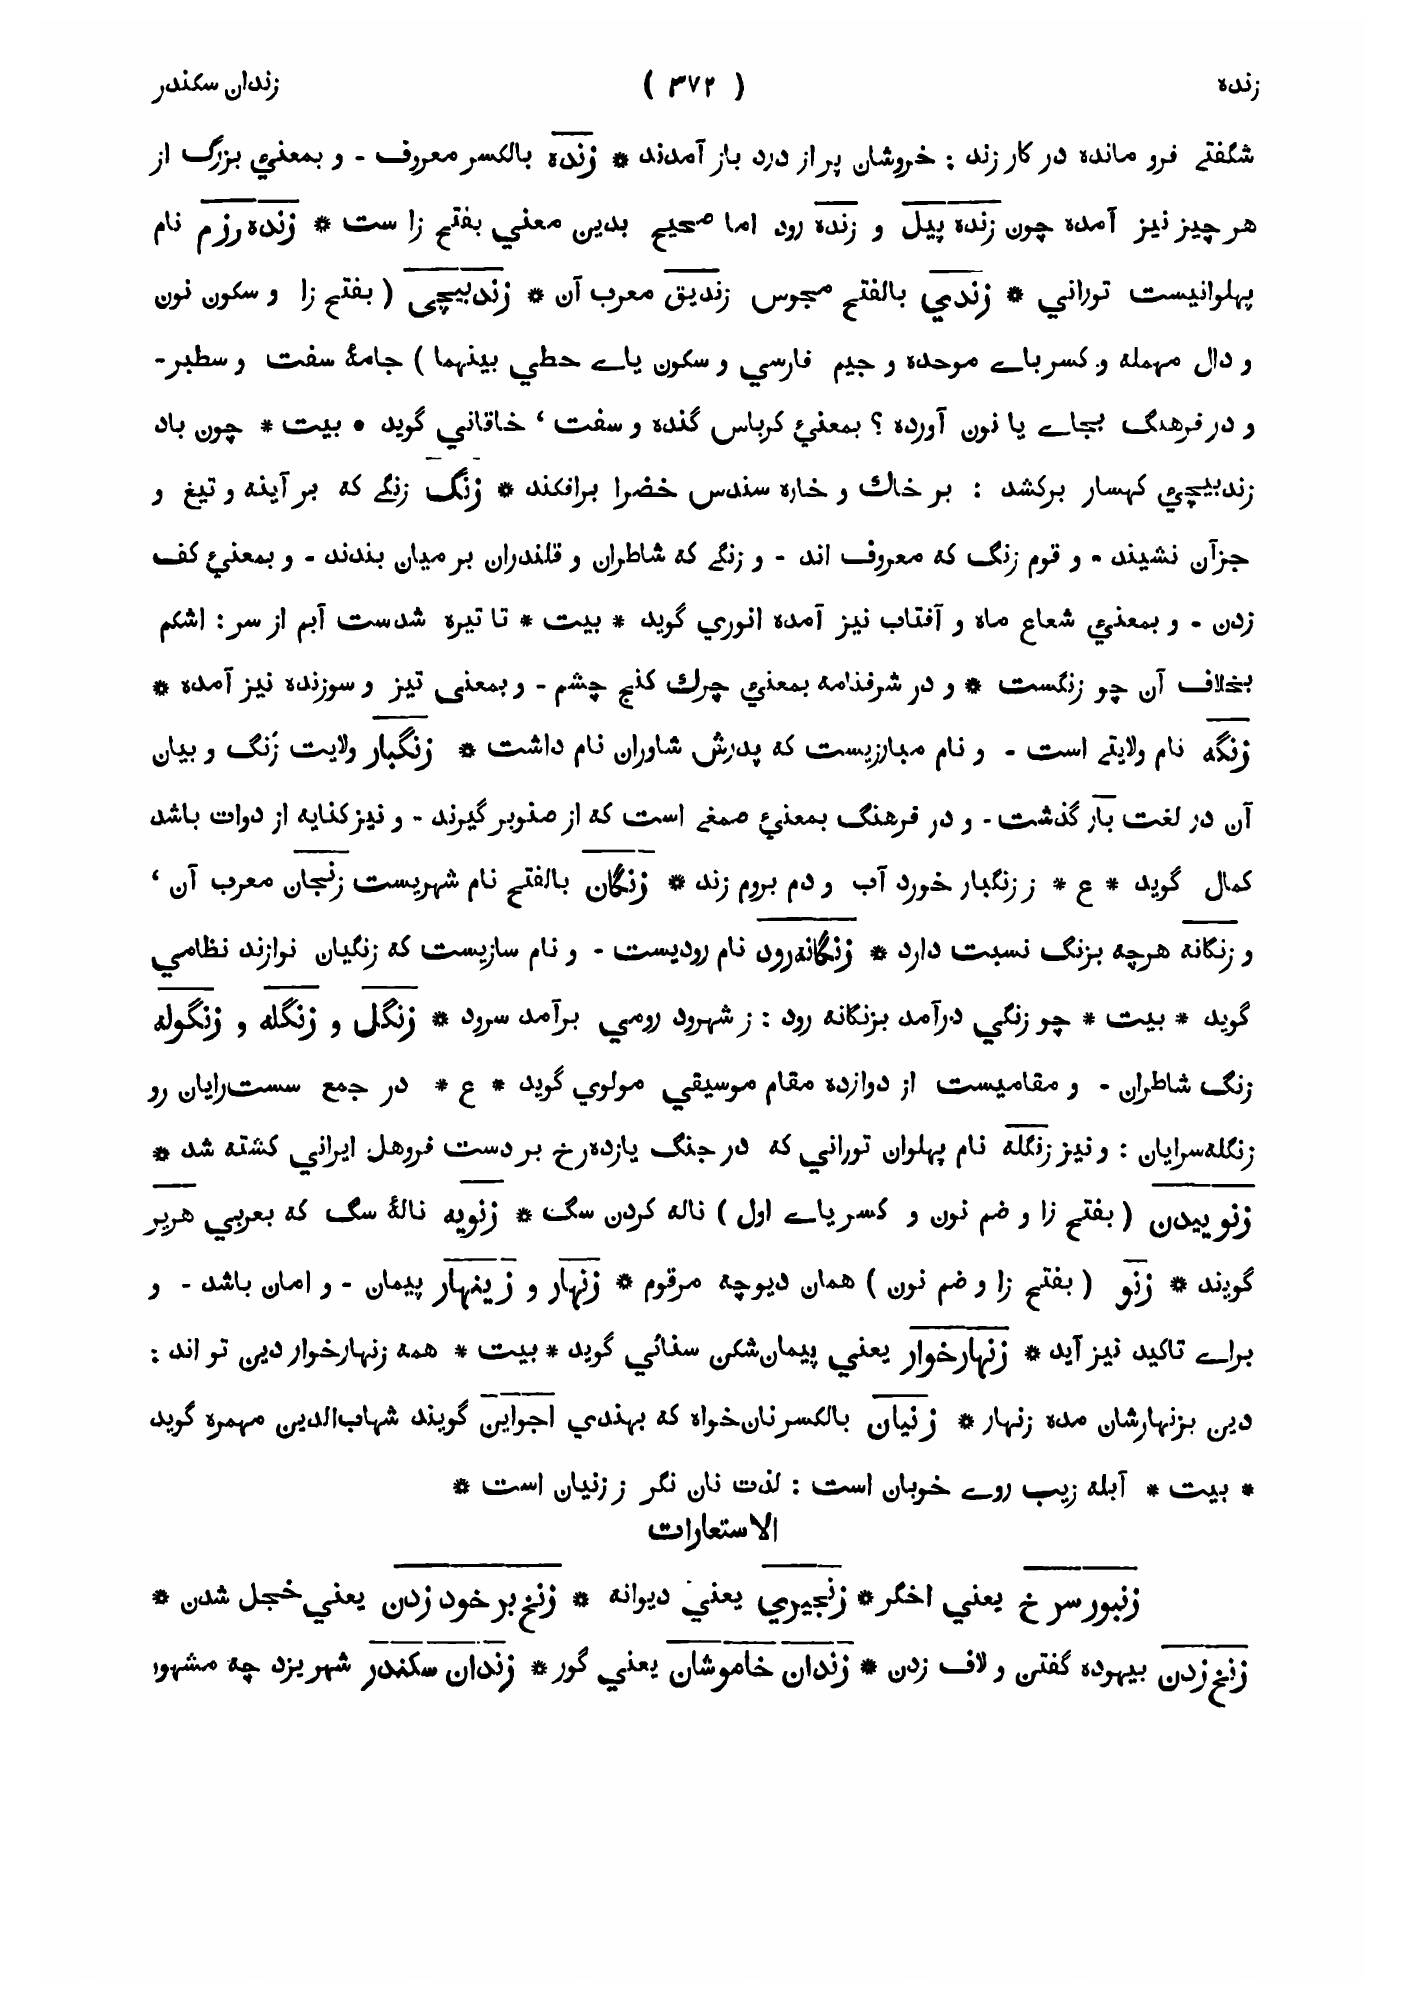 زنده ( ۳۷۲ ) زندان سكندر
شگفتے فرو ماندہ در كار زند : خروشان پر از درد باز آمدند * زنده بالكسر معروف - و بمعنيِ بزرگ از
هر چيز نيز آمده چون زنده پيل و زنده رود اما صحيح بدين معني بفتح زا ست * زنده رزم نام
پهلوانيست توراني * زندي بالفتح مجوس زنديق معرب آن * زندبيچى ( بفتح زا و سكون نون
و دال مهمله و كسر باے موحده و جيم فارسي و سكون ياے حطي بينهما ) جامۀ سفت و سطبر -
و در فرهنگ بجاے يا نون آورده ؟ بمعنيِ كرباس گنده و سفت ‘ خاقاني گويد • بيت * چون باد
زندبيچيِ كهسار بركشد : بر خاك و خاره سندس خضرا برافكند * زنگ زنگے كه بر آينه و تيغ و
جزآن نشيند - و قوم زنگ كه معروف اند - و زنگے كه شاطران و قلندران بر ميان بندند - و بمعنيِ كف
زدن - و بمعنيِ شعاع ماه و آفتاب نيز آمده انوري گويد * بيت * تا تيره شدست آبم از سر : اشكم
بخلاف آن چو زنگست * و در شرفنامه بمعنيِ چرك كنج چشم - و بمعنى تيز و سوزنده نيز آمده *
زنگه نام ولايتے است - و نام مبارزيست كه پدرش شاوران نام داشت * زنگبار ولايت زنگ و بيان
آن در لغت بار گذشت - و در فرهنگ بمعنيِ صمغے است كه از صنوبر گيرند - و نيز كنايه از دوات باشد
كمال گويد * ع * ز زنگبار خورد آب و دم بروم زند * زنگان بالفتح نام شهريست زنجان معرب آن ‘
و زنگانه هرچه بزنگ نسبت دارد * زنگانه‌رود نام روديست - و نام سازيست كه زنگيان نوازند نظامي
گويد * بيت * چو زنگي درآمد بزنگانه رود : ز شهرود رومي برآمد سرود * زنگل و زنگله و زنگوله
زنگ شاطران - و مقاميست از دوازده مقام موسيقي مولوي گويد * ع * در جمع سست‌رايان رو
زنگله‌سرايان : و نيز زنگله نام پهلوان توراني كه در جنگ يازده‌رخ بر دست فروهل ايراني كشته شد *
زنوييدن ( بفتح زا و ضم نون و كسر ياے اول ) ناله كردن سگ * زنويه نالۀ سگ كه بعربي هرير
گويند * زنو ( بفتح زا و ضم نون ) همان ديوچه مرقوم * زنهار و زينهار پيمان - و امان باشد - و
براے تاكيد نيز آيد * زنهارخوار يعني پيمان‌شكن سنائي گويد * بيت * همه زنهارخوار دين تو اند :
دين بزنهارشان مده زنهار * زنيان بالكسر نان‌خواه كه بهندي اجواين گويند شهاب‌الدين مهمره گويد
* بيت * آبله زيب روے خوبان است : لذت نان نگر ز زنيان است *
الاستعارات
زنبور سرخ يعني اخگر * زنجيري يعني ديوانه * زنخ بر خود زدن يعني خجل شدن *
زنخ زدن بيهوده گفتن و لاف زدن * زندان خاموشان يعني گور * زندان سكندر شهر يزد چه مشهور